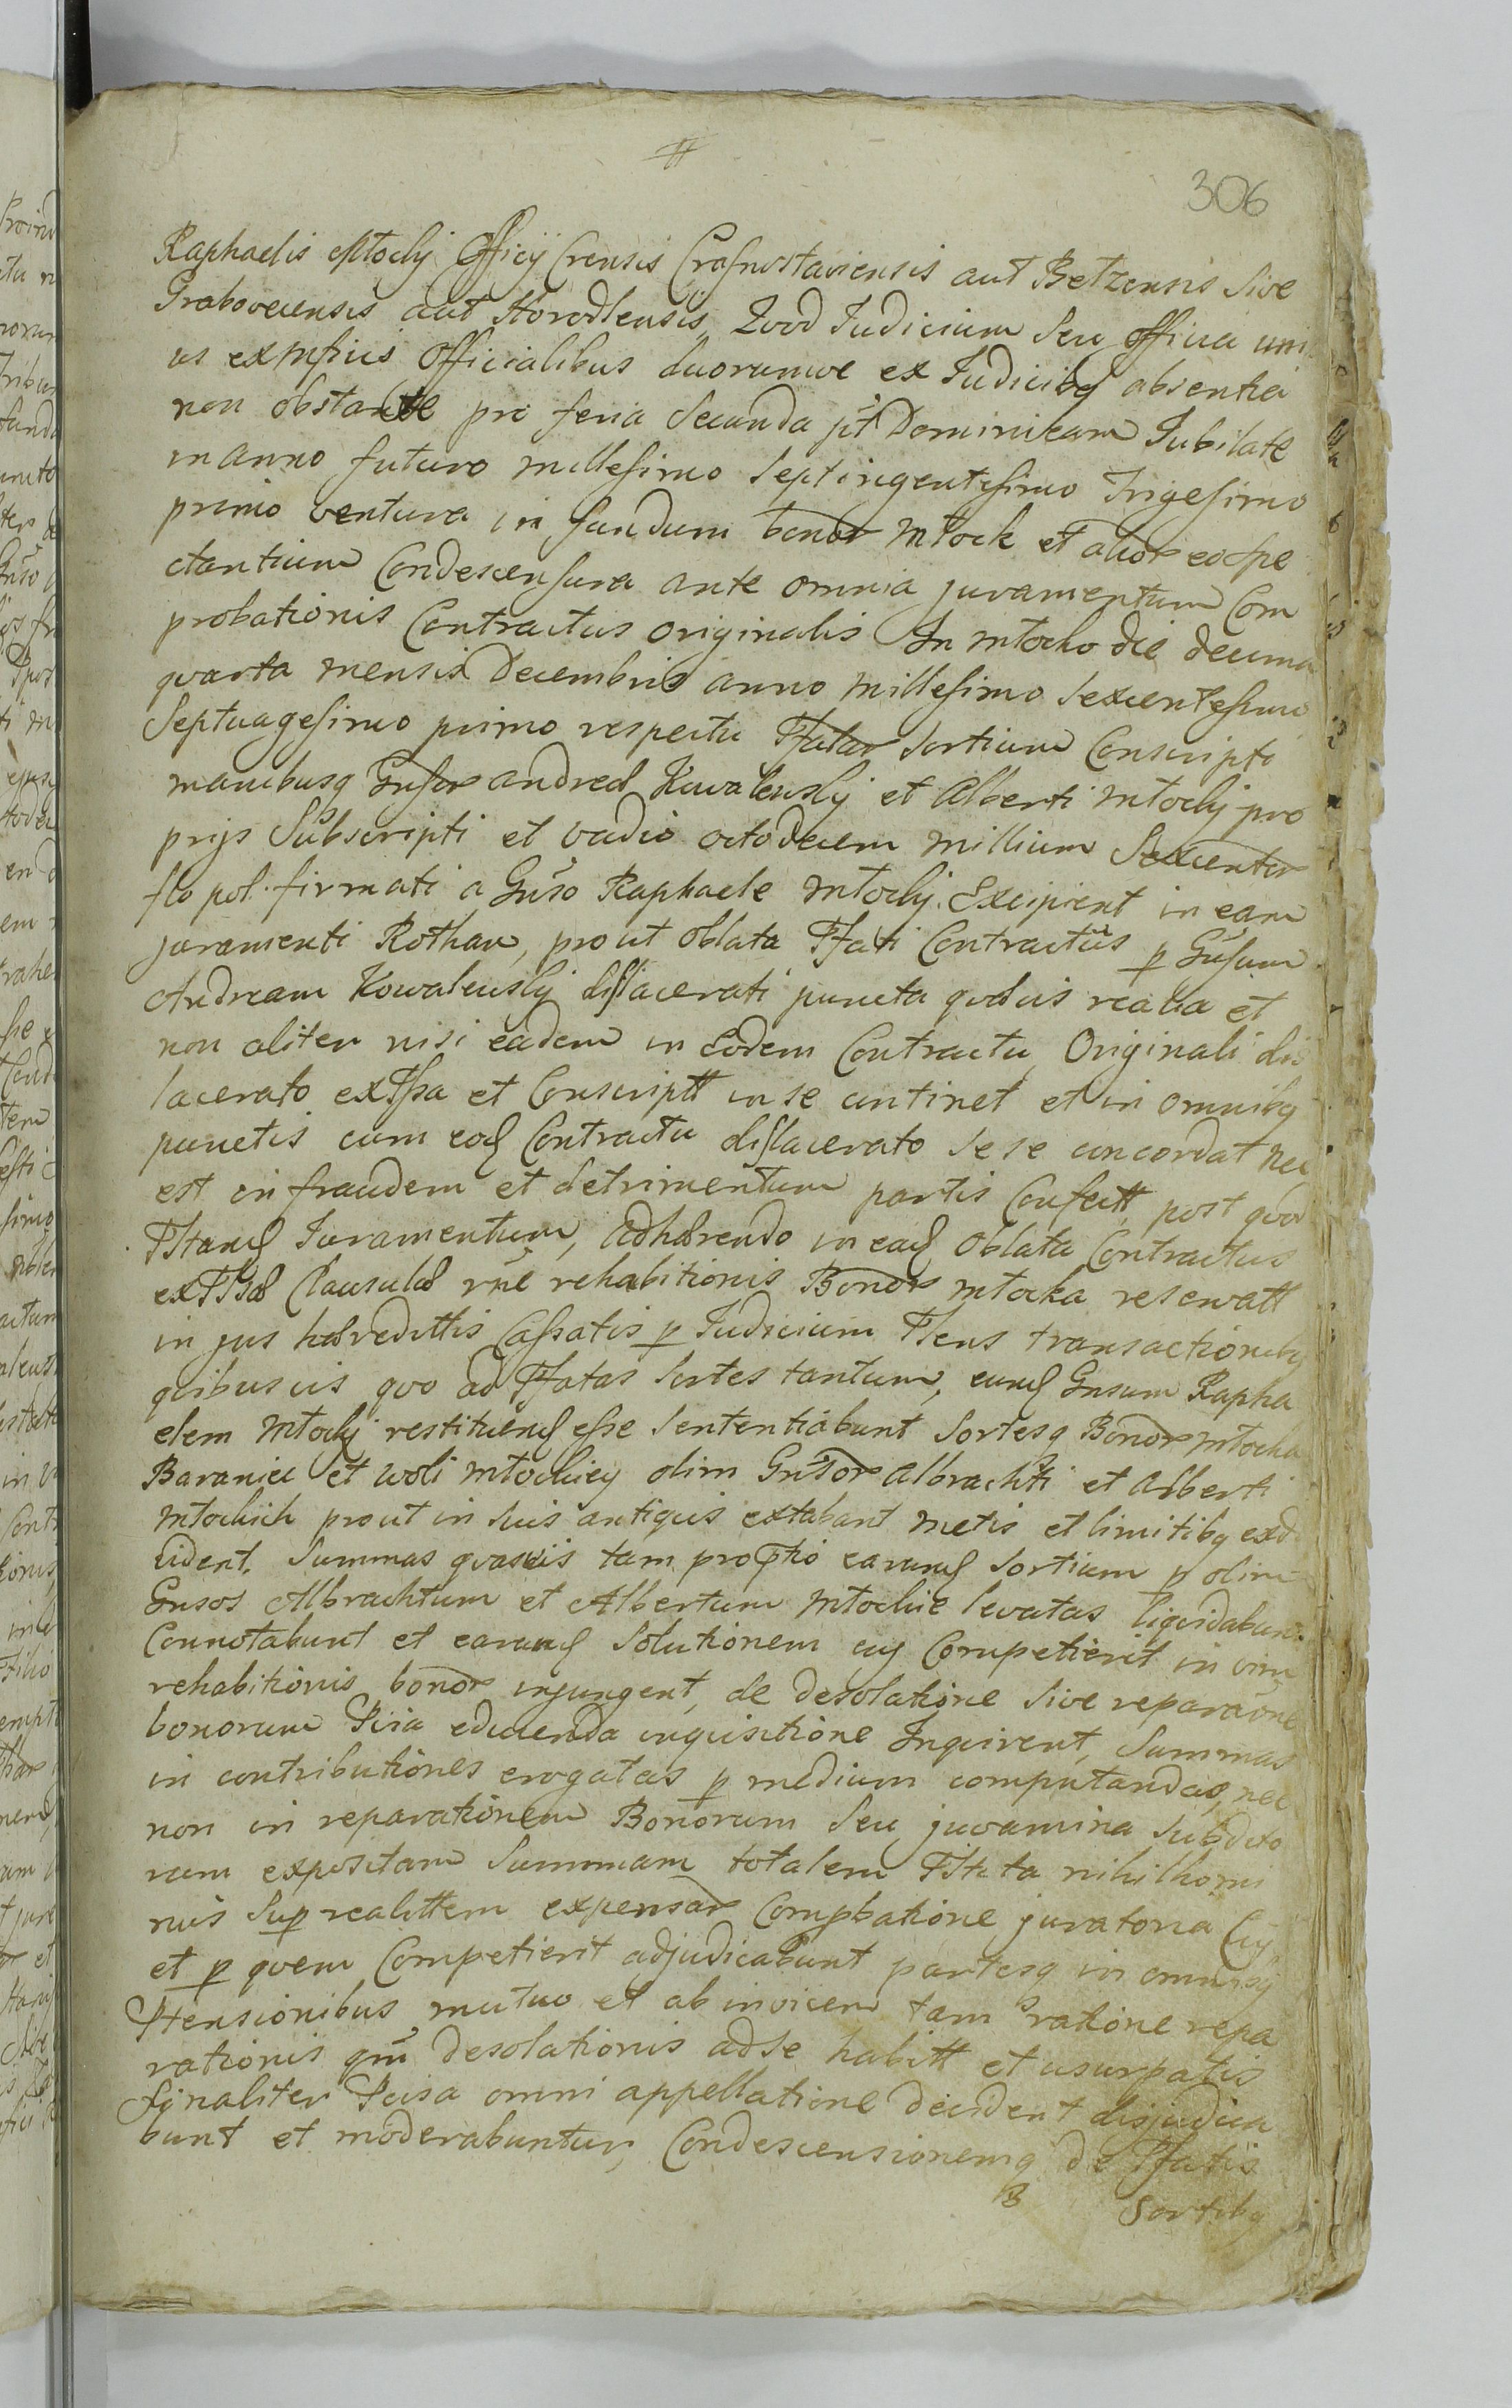 306
Raphaelis Młocky Officij Crensis Crasnostaviensis aut Betzensis sive
Grabovecensis aut Horodlensis, Quod Judicium seu officia uni
us ex mjsius Officialibus duorumve ex Judicibq absentia
non obstante pro feria secunda pt Dominicam Jubilate
in anno futuro millesimo septingentesimo Trigesimo
primo ventura in fundum bonor Młock et alior eo spe
ctantium Condescensura ante omnia juramentum Com
probationis Contractus originalis In Młocko die decima
quarta mensis Decembris anno millesimo sexcentesimo
Septuagesimo primo respectu Pfatar sortium Conscripti
manibusq Gnsor Andreæ Kowalewsky et Alberti Młocky pro
prijs Subscripti et vadio octodecem millium Sexcentor
flo pol. firmati a Gnso Raphaele Młocky. Excipient in eam
juramenti Rotham, prout oblata Pfati Contractus p Gnsum
Andream Kowalewsky dislacerati puncta quævis realia et
non aliter nisi eadem in Eodem Contractu Originali dis
lacerato expssa et Conscriptt in se continet et in omnibq
punctis cum eod Contractu dislacerato se se concordat nec
est in fraudem et detrimentum partis Confectt, post quod
Pstand Juramentum, adhærendo in ead oblata Contractus
expssæ Clausulæ rne rehabitionis Bonor Młocka reservatt
in jus hæredittis Cassatis p Judicium Pens transactionibq
quibusvis quo ad Pfatas sortes tantum, eund Gnsum Rapha
elem Młocky restituend esse sententiabunt Sortesq Bonor Młocka
Baraniec et Woli Młockiey olim Gnsor Albrachti et Alberti
Młockich prout in suis antiquis extabant metis et limitibq exd
vident. Summas quasvis tam proptio earund sortium p olim
Gnsos Albrachtum et Albertum Młockie levatas liquidabunt
Connotabunt et earund Solutionem cuj Competierit in vim
rehabitionis bonor injungent, de desolatione sive reparaone
bonorum Pvia educenda inquisitione Inquirent, Summas
in contributiones erogatas p medium computandas, nec
non in reparationem Bonorum seu juvamina subdito
rum expositam Summam totalem Pstita nihilhomi
nus sup realittem expensar Compbatione juratoria Cuj
et p quem Competierit adjudicabunt partesq in omnibq
Ptensionibus mutuo et ab invicem tam ratione repa
rationis qm desolationis ad se habitt et usurpatis
finaliter Pcisa omni appellatione decident disjudica
bunt et moderabuntur, Condescensionemq de Pfatis
Sortibq